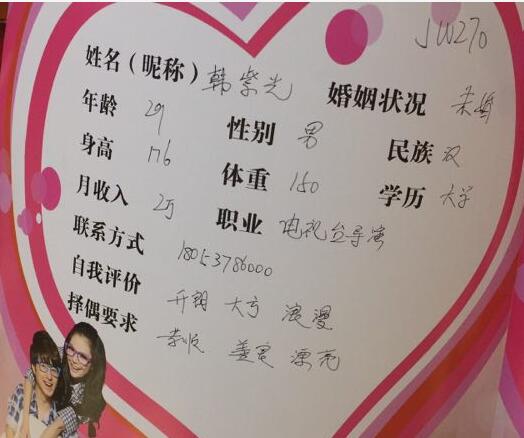 JW270
姓名（昵称）韩紫光 婚姻状况 未婚
年龄 29 性别 男 民族 汉
身高 176 体重 150 学历 大学
月收入 2万 职业 电视台导演
联系方式 18053786000
自我评价 开朗 大方 浪漫
择偶要求 孝顺 善良 漂亮